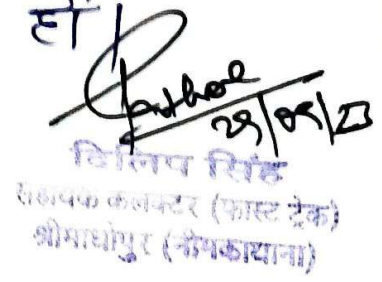 हो।
Rathore
29/09/23
दिलिप सिंह
सहायक कलक्टर (फास्ट ट्रेक)
श्रीमाधोपुर (नीमकाथाना)